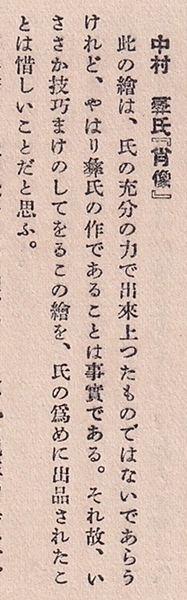 中村　彝氏『肖像』
此の繪は、氏の充分の力で出來上つたものではないであらう
けれど、やはり彝氏の作であることは事實である。それ故、い
さゝか技巧まけのしてをるこの繪を、氏の爲めに出品されたこ
とは惜しいことだと思ふ。